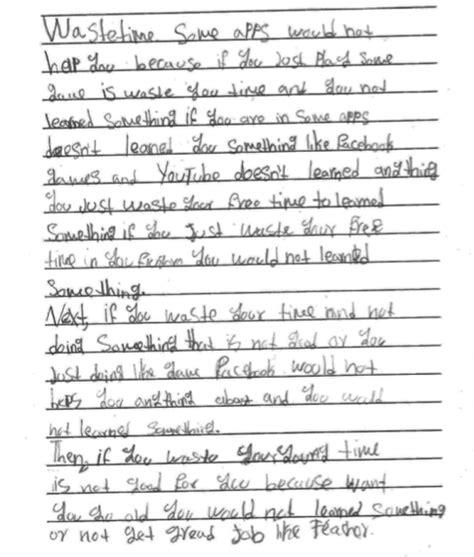 Wastetime Some apps would not
hep you because if you Just Play Some
game is waste you time and you not
learned Something if you are in Some apps
doesn't learned you Something like Facebook
games and YouTube doesn't learned anything
you Just waste your free time to learned
Something if you Just waste your free
time in you you would not learned
Something.
Next, if you waste your time and not
doing Something that is not good or you
Just doing like game Facebook would not
heps you anything about and you would
not learned Something.
Then, if you waste your young time
is not good for you because want
you go old you would not learned Something
or not get gread Job like Teachor.